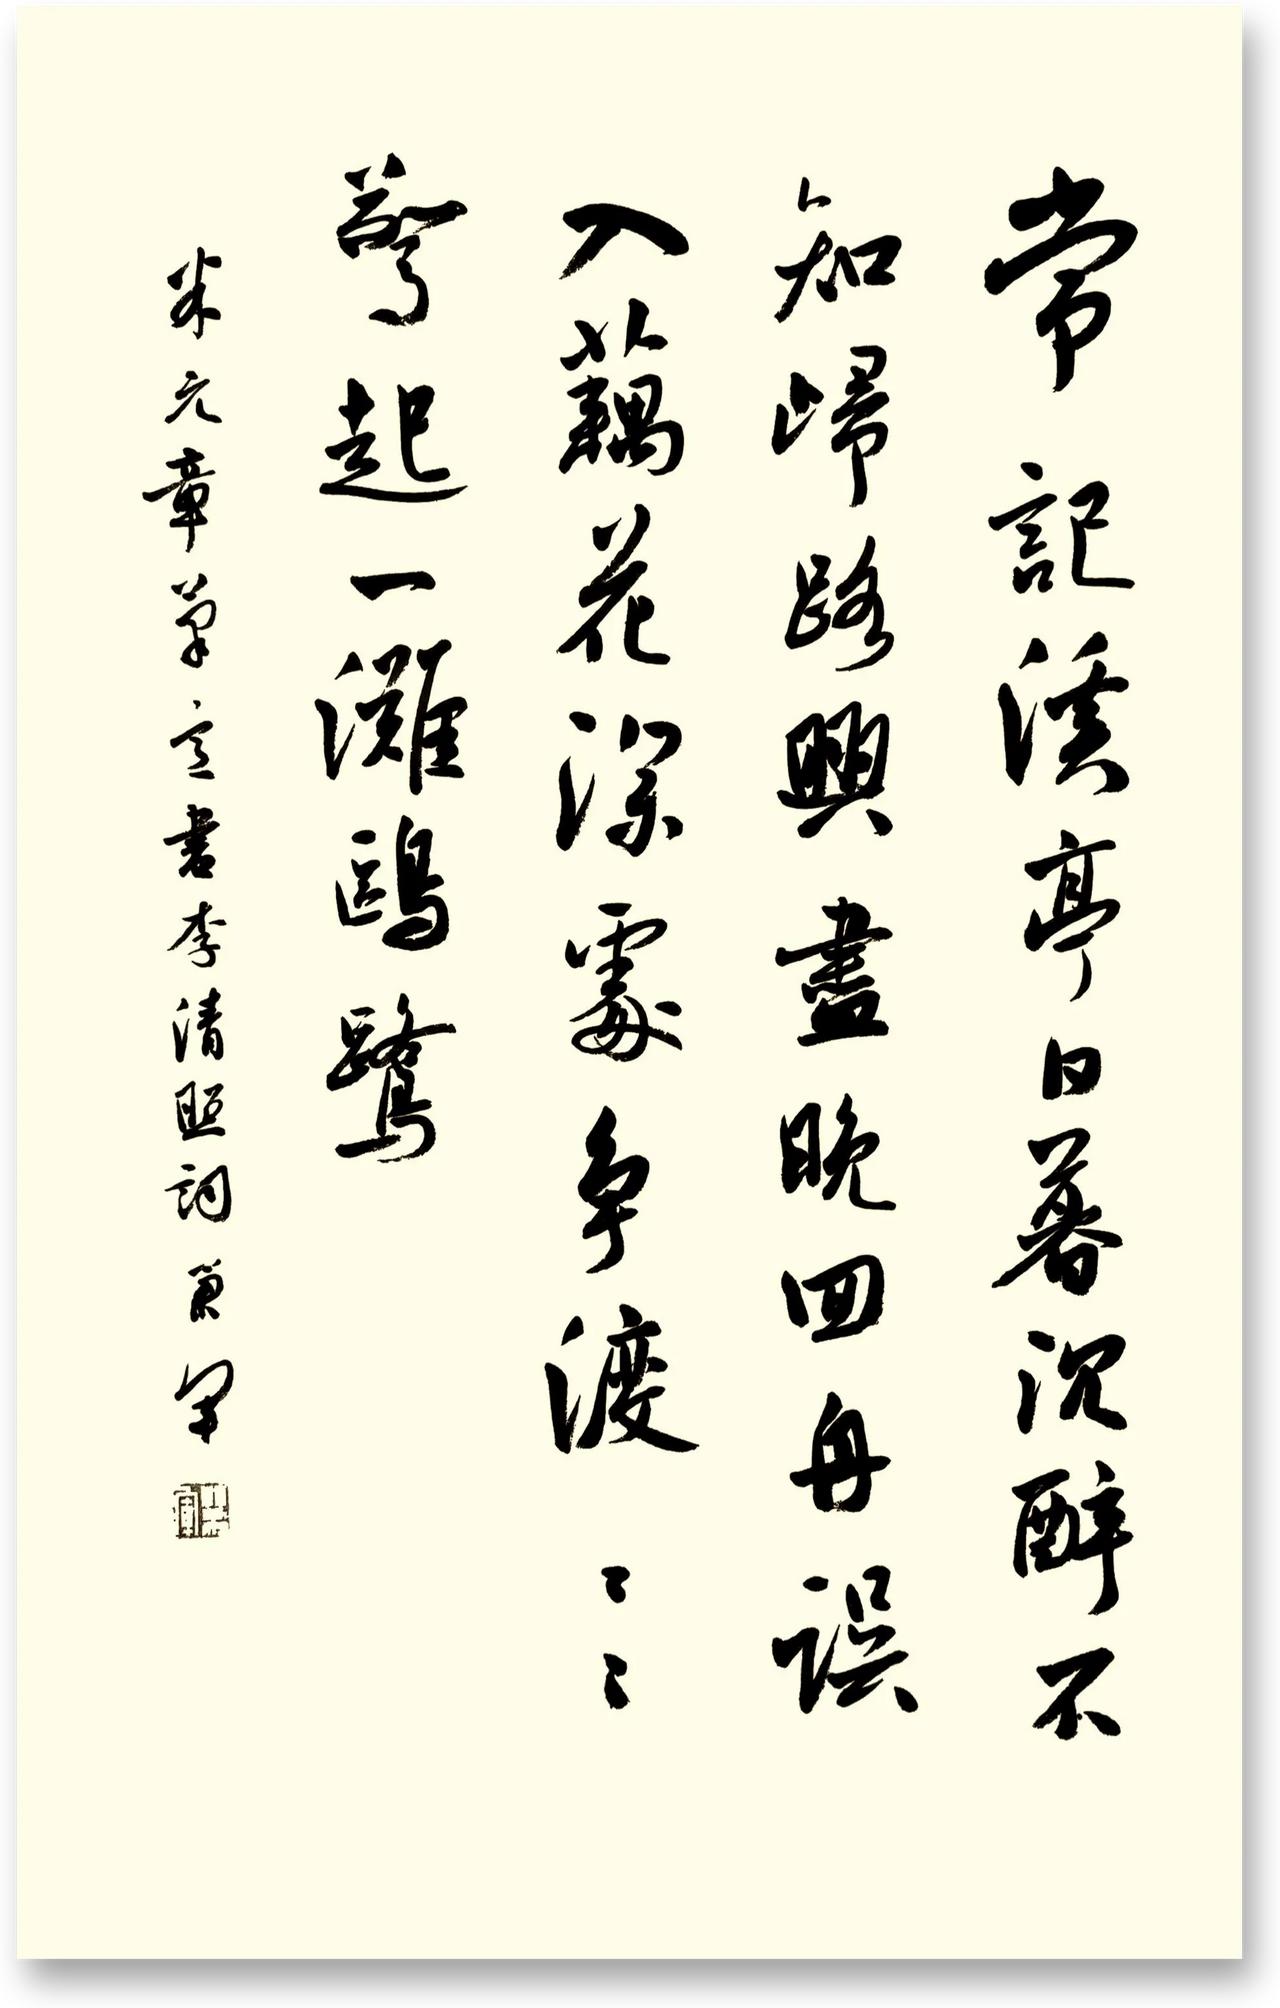 常記溪亭日暮沉醉不
知歸路興盡晚回舟誤
入藕花深處争渡〻〻
驚起一灘鷗鷺
米元章筆意書李清照詞